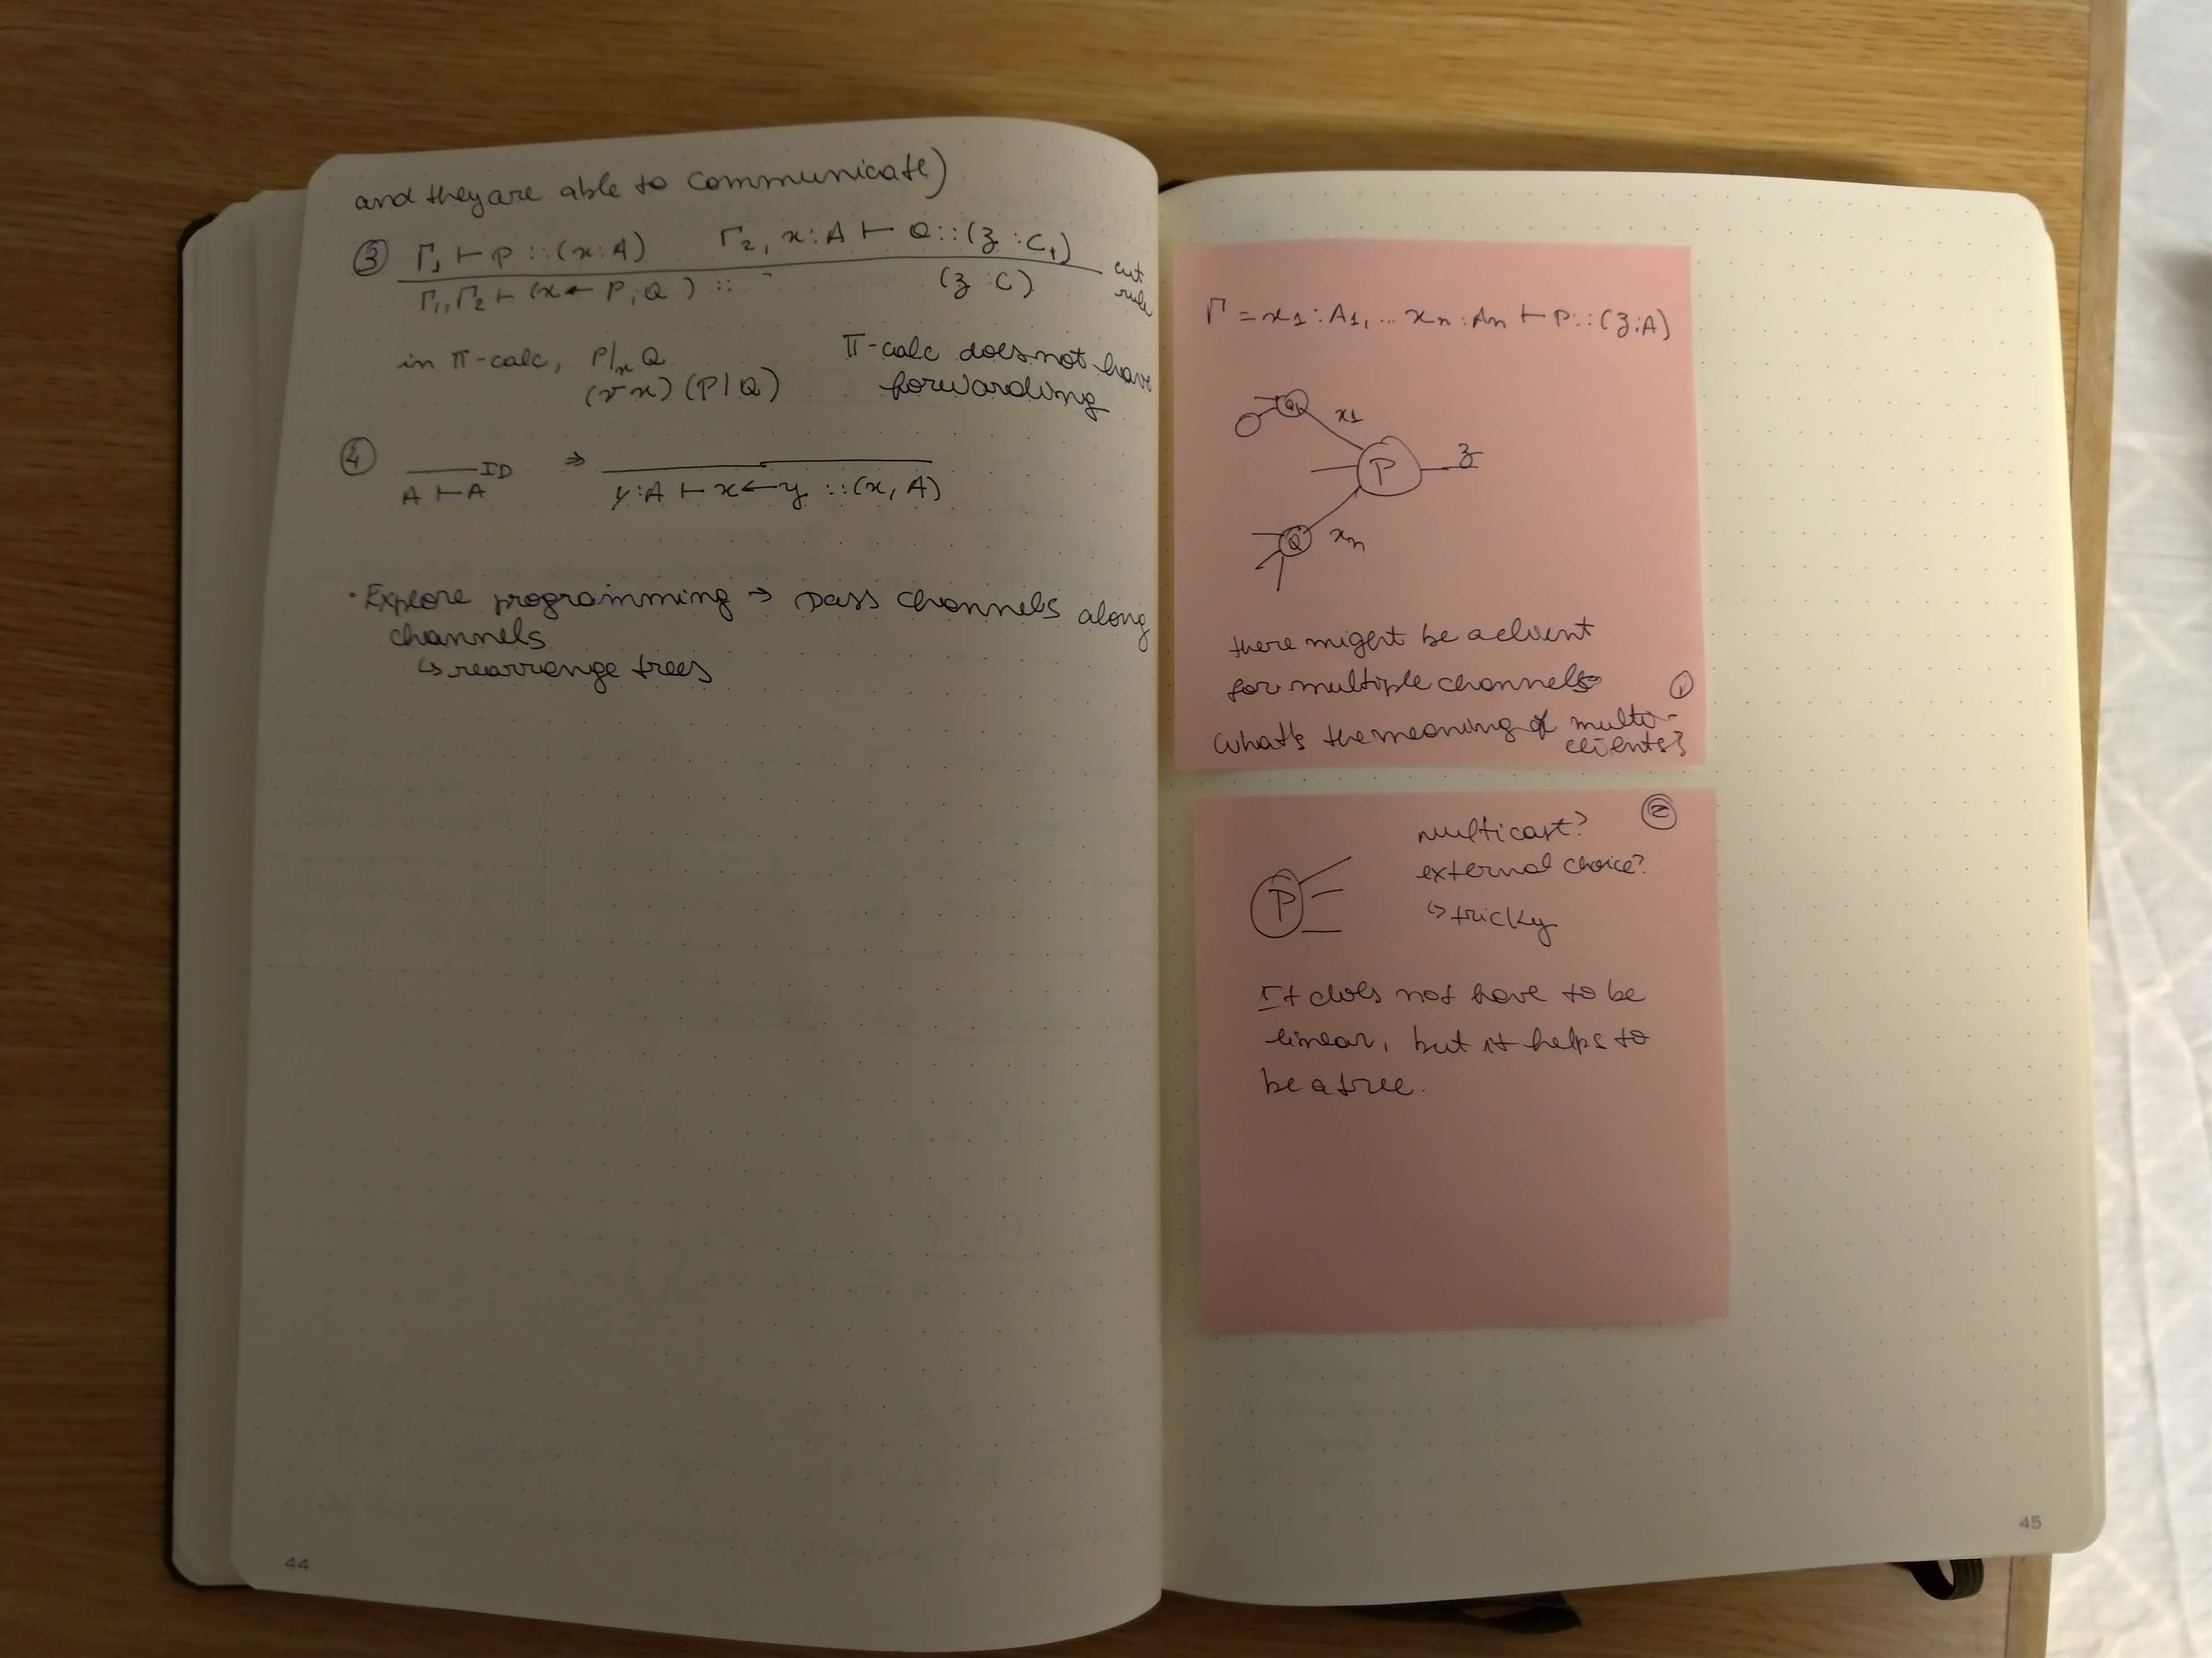 and they are able to communicate)
③ Γ₁ ⊢ P :: (x:A)  Γ₂, x:A ⊢ Q :: (z : C₁)
Γ₁, Γ₂ ⊢ (x ← P; Q) :: (z : C)
cut
rule
in π-calc, P|ₓQ
(νx) (P|Q)
π-calc does not have
forwarding
④ ID ⇒
A ⊢ A  y:A ⊢ x ← y :: (x, A)
· Explore programming → pass channels along
channels
↳ rearrange trees
44
Γ = x₁:A₁, ... xₙ:Aₙ ⊢ P :: (z:A)
Q₁ x₁
P z
Q xₙ
there might be a client
for multiple channels
①
what's the meaning of multi-
clients?
②
multicast?
external choice?
↳ tricky
P
It does not have to be
linear, but it helps to
be a tree.
45